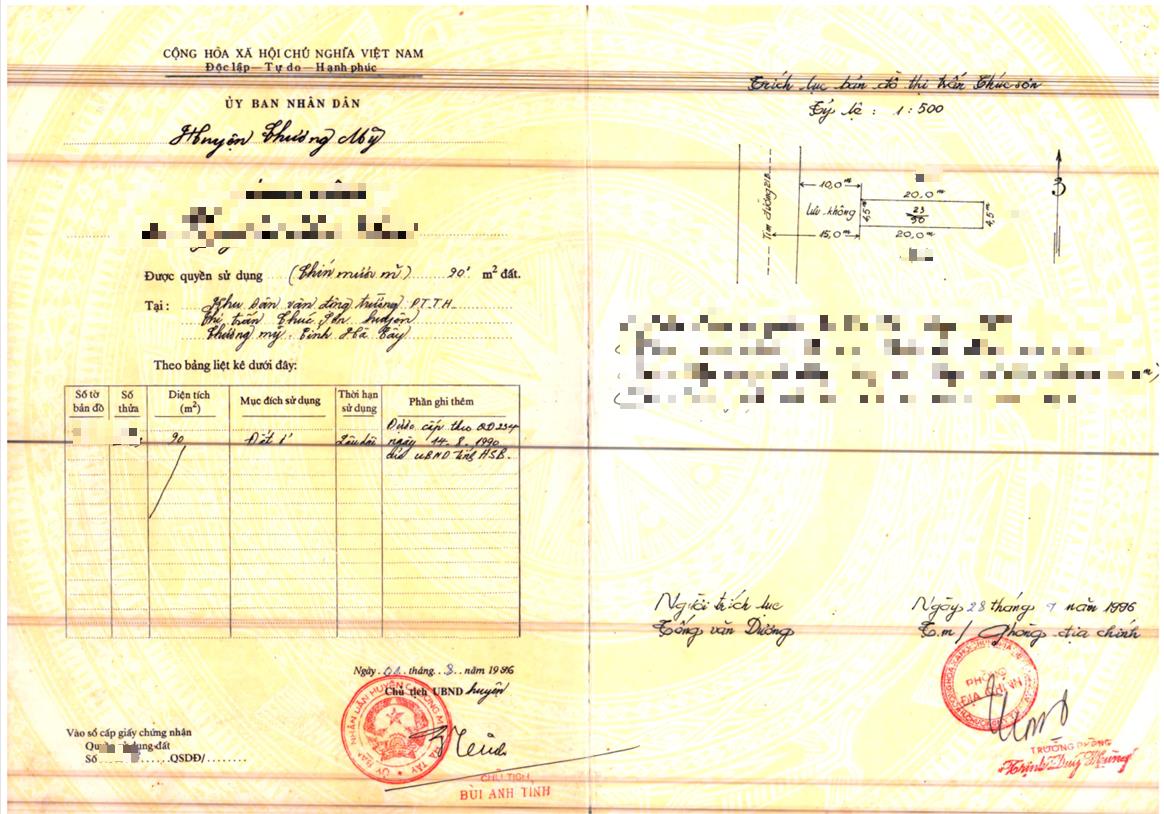 CỘNG HÒA XÃ HỘI CHỦ NGHĨA VIỆT NAM
Độc lập — Tự do — Hạnh phúc
ỦY BAN NHÂN DÂN
Huyện Chương Mỹ
Được quyền sử dụng (Chín mươi m²) 90 m² đất.
Tại: Khu Sân vận động trường PTTH
thị trấn Chúc Sơn huyện
Chương mỹ. Tỉnh Hà Tây
Theo bảng liệt kê dưới đây:
Số tờ bản đồ Số thửa Diện tích (m²) Mục đích sử dụng Thời hạn sử dụng Phần ghi thêm
90 Đất ở Lâu dài Được cấp theo QĐ 234
ngày 14.8.1990
của UBND tỉnh HSB.
Ngày 01 tháng 8 năm 1996
Chủ tịch UBND huyện
CHỦ TỊCH
BÙI ANH TINH
Vào sổ cấp giấy chứng nhận
Số QSDĐ/
Trích lục bản đồ thị trấn Chúc sơn
Tỷ lệ: 1:500
Tim đường 21B
10,0m
lưu không
15,0m
20,0m
4,5m
23
90
4,5m
20,0m
Người trích lục
Tống văn Dương
Ngày 28 tháng 9 năm 1996
T.m/ Phòng địa chính
PHÒNG
ĐỊA CHÍNH
TRƯỞNG PHÒNG
Trịnh Duy Hùng